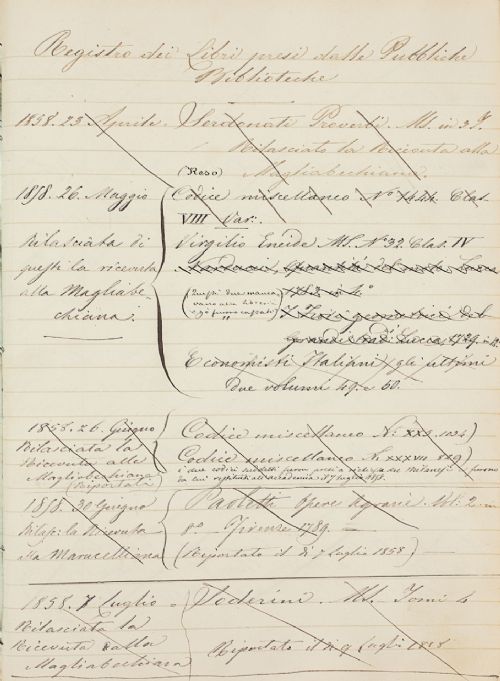 Registro dei Libri presi dalle Pubbliche
Biblioteche
1858. 23 Aprile. Serdonati Proverbi. Ms. in 3
Rilasciato la Ricevuta alla
(Reso) Magliabechiana.
1858. 26. Maggio Codice miscellaneo No. 1444. Clas.
VIII Var:.
Rilasciata di Virgilio Eneide Ms. No. 32. Clas. IV
questi la ricevuta
alla Magliabe-
chiana.
(Questi due manca
vano alla libreria
e
in 4o
Lucca, 1729. in
Economisti Italiani gli ultimi
due volumi 49. e 60.
1858. 26. Giugno Codice miscellaneo No. XXI. 1024)
Rilasciata la Codice miscellaneo No. XXXVII 859)
Ricevuta alla i due codici suddetti furon presi a richiesta del Milanesi e furono
Magliabechiana da lui restituiti all'Accademia il 7 luglio 1858.
(Riportati)
1858. 30 Giugno Paoletti Opere Agrarie. Vol: 2 in
Rilasc: la Ricevuta 8o. Firenze 1789. =
alla Marucelliana (Riportato il dì 7 Luglio 1858)
1858. 7 Luglio = Soderini. Ms. Tomi 4
Rilasciata la
Ricevuta alla Riportato il dì 9 Luglio 1858
Magliabechiana